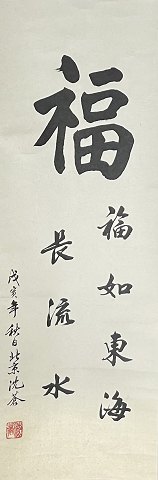 福
福如東海
長流水
戊亥年秋日北京沈蒼